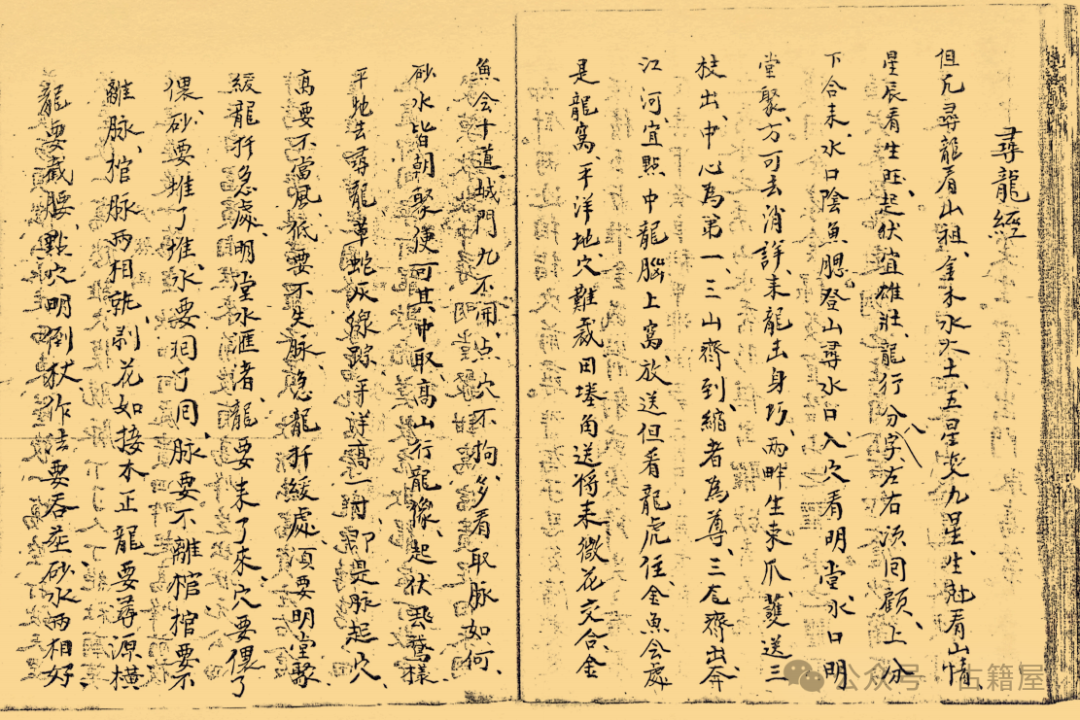 尋龍經
但凡尋龍看山祖、金木水火土、五星变九星、生尅看山情、
星辰看生旺、起伏宜雄壯、龍行分八字左右須回顧、上分
下合来、水口陰魚腮登山尋水口、入穴看明堂、水口明
堂聚、方可去消詳、来龍出身巧、两畔生来爪、送三
枝出、中心為第一、三山齊到縮者為尊、三尤齊出奔
江河、宜點中龍腦上窩、放送但看龍虎住、金魚会處
是龍窩、平洋地穴難裁、田塍角送将来微花交合、金
魚会十道、城門九不開、点穴不拘、多看取脉如何、
砂水皆朝聚、便可其中取、高山行龍像、起伏鵞樣
平地去尋龍、草蛇灰線踪、平洋高一寸、即是脉起穴、
高要不當風、低要不失脉、急龍扦緩處、須要明堂聚
緩龍扦急處、明堂水匯渚、龍要来了来、穴要偎了
偎、砂要堆了堆、水要囘了囘、脉要不離棺、棺要不
離脉、棺脉两相就、剥花如接木、正龍要尋源、橫
龍要截腰、點穴明倒杖、作法要吞茔、砂水两相好、
公众号 · 古籍屋